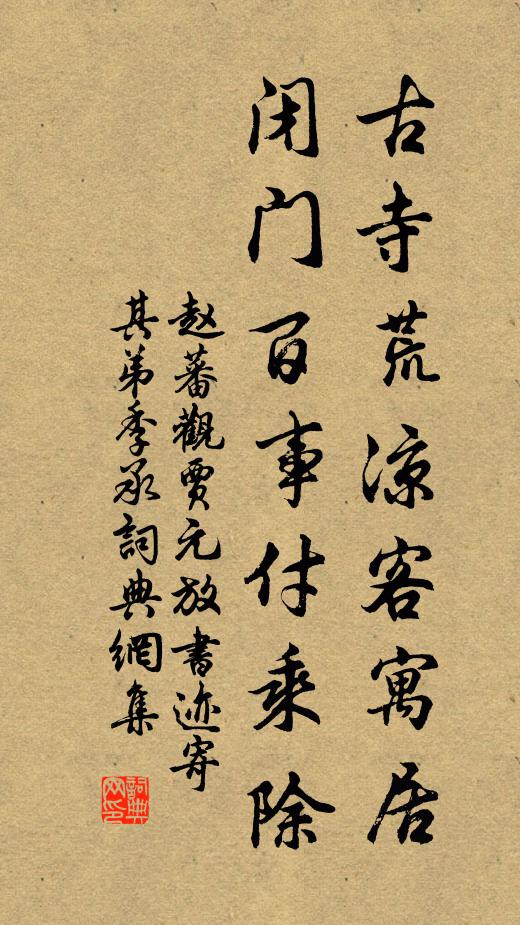 古寺荒凉客寓居
闭门百事付乘除
赵蕃觀贾元放書迹寄
其弟季承詞典網集
詞典网印